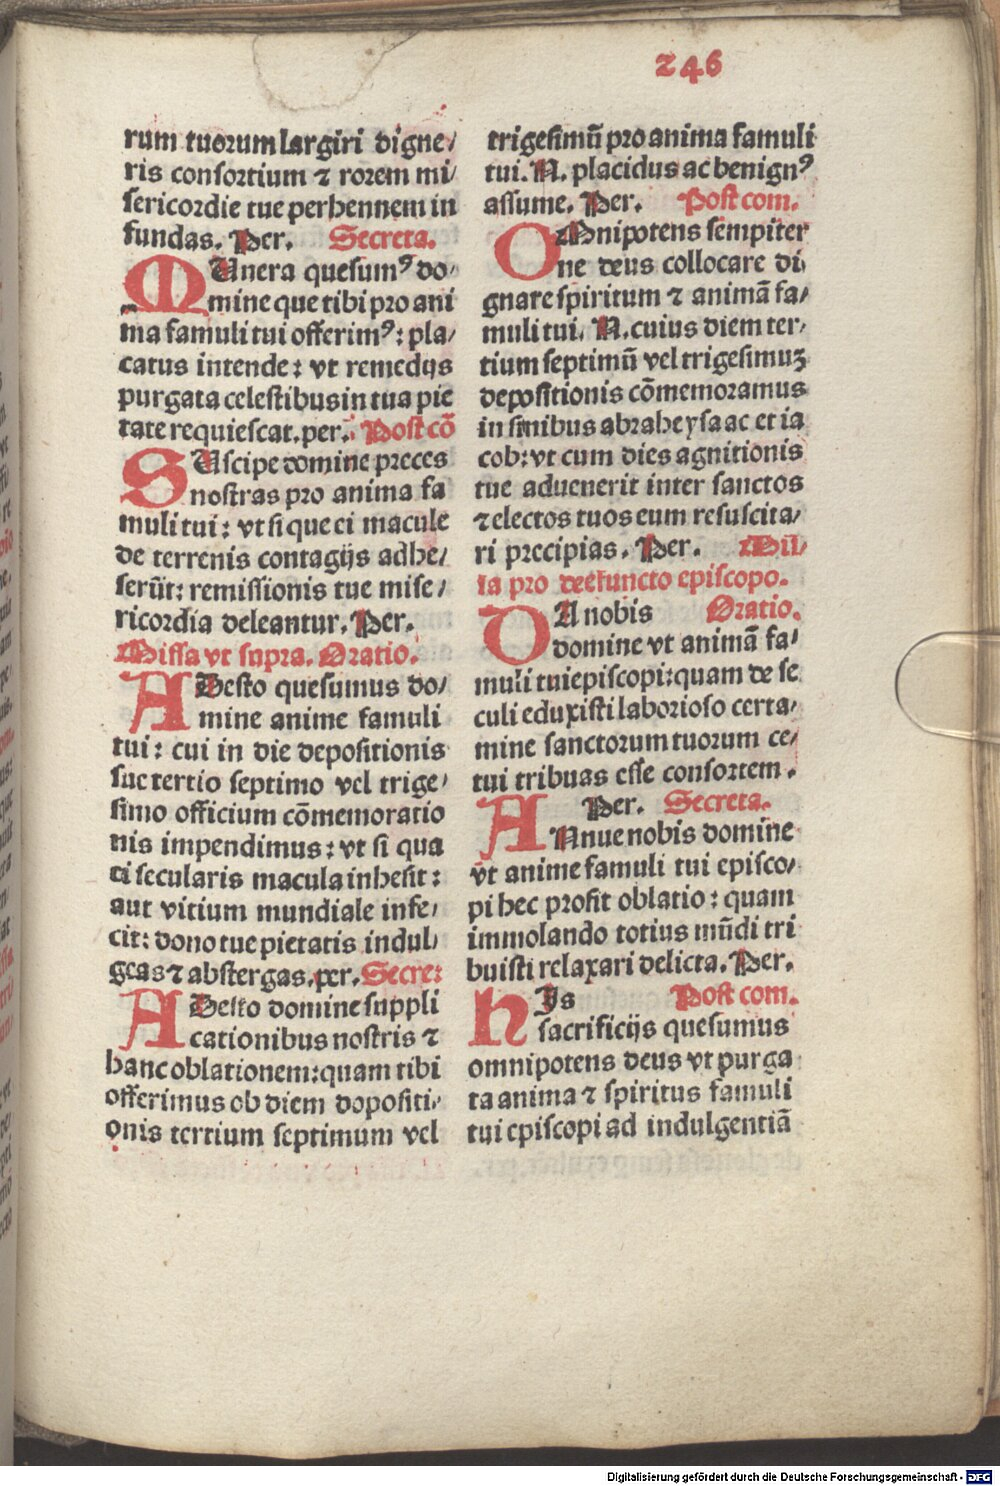 246
rum tuorum largiri digne/
ris consortium ⁊ rorem mi/
sericordie tue perhennem in
fundas. Per. Secreta.
MUnera quesumꝰ do/
mine que tibi pro ani
ma famuli tui offerimꝰ: pla/
catus intende: vt remedijs
purgata celestibus in tua pie
tate requiescat. per. Post cō
SUscipe domine preces
nostras pro anima fa
muli tui: vt si que ei macule
de terrenis contagijs adhe/
serūt: remissionis tue mise/
ricordia deleantur. Per.
Missa vt supra. Oratio.
ADesto quesumus do/
mine anime famuli
tui: cui in die depositionis
sue tertio septimo vel trige/
simo officium cōmemoratio
nis impendimus: vt si qua
ei secularis macula inhesit:
aut vitium mundiale infe/
cit: dono tue pietatis indul/
geas ⁊ abstergas. per. Secre:
ADesto domine suppli
cationibus nostris ⁊
hanc oblationem: quam tibi
offerimus ob diem dopositi/
onis tertium septimum vel
trigesimū pro anima famuli
tui. N. placidus ac benignꝰ
assume. Per. Post com.
OMnipotens sempiter
ne deus collocare di/
gnare spiritum ⁊ animā fa/
muli tui. N. cuius diem ter/
tium septimū vel trigesimuʒ
depositionis cōmemoramus
in sinibus abrahe ysaac et ia
cob: vt cum dies agnitionis
tue aduenerit inter sanctos
⁊ electos tuos eum resuscita/
ri precipias. Per. Mis/
sa pro deefuncto episcopo.
DA nobis Oratio.
domine vt animā fa/
muli tui episcopi: quam de se
culi eduxisti laborioso certa/
mine sanctorum tuorum ce/
tui tribuas esse consortem.
Per. Secreta.
ANnue nobis domine
vt anime famuli tui episco/
pi hec prosit oblatio: quam
immolando totius mūdi tri
buisti relaxari delicta. Per.
HIs Post com.
sacrificijs quesumus
omnipotens deus vt purga
ta anima ⁊ spiritus famuli
tui episcopi ad indulgentiā
Digitalisierung gefördert durch die Deutsche Forschungsgemeinschaft - DFG